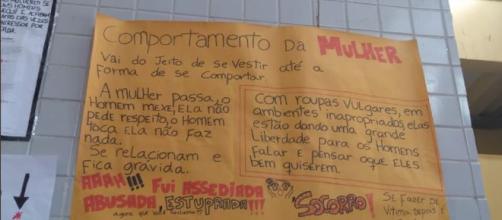 Comportamento Da MULHER
Vai do Jeito de se Vestir até a
forma de se Comportar.
A mulher passa, o
Homem mexe, Ela não
pede respeito, o Homem
toca Ela não faz
nada.
Se relacionam e
fica gravida.
Com roupas Vulgares, em
ambientes inapropriados, elas
estão dando uma grande
Liberdade para os Homens
falar e pensar oque ELES
bem quiserem.
AAAH!!! Fui ASSEDIADA
ABUSADA, ESTUPRADA!!!
SOCORRO!
Se fazer de
vitima Depois